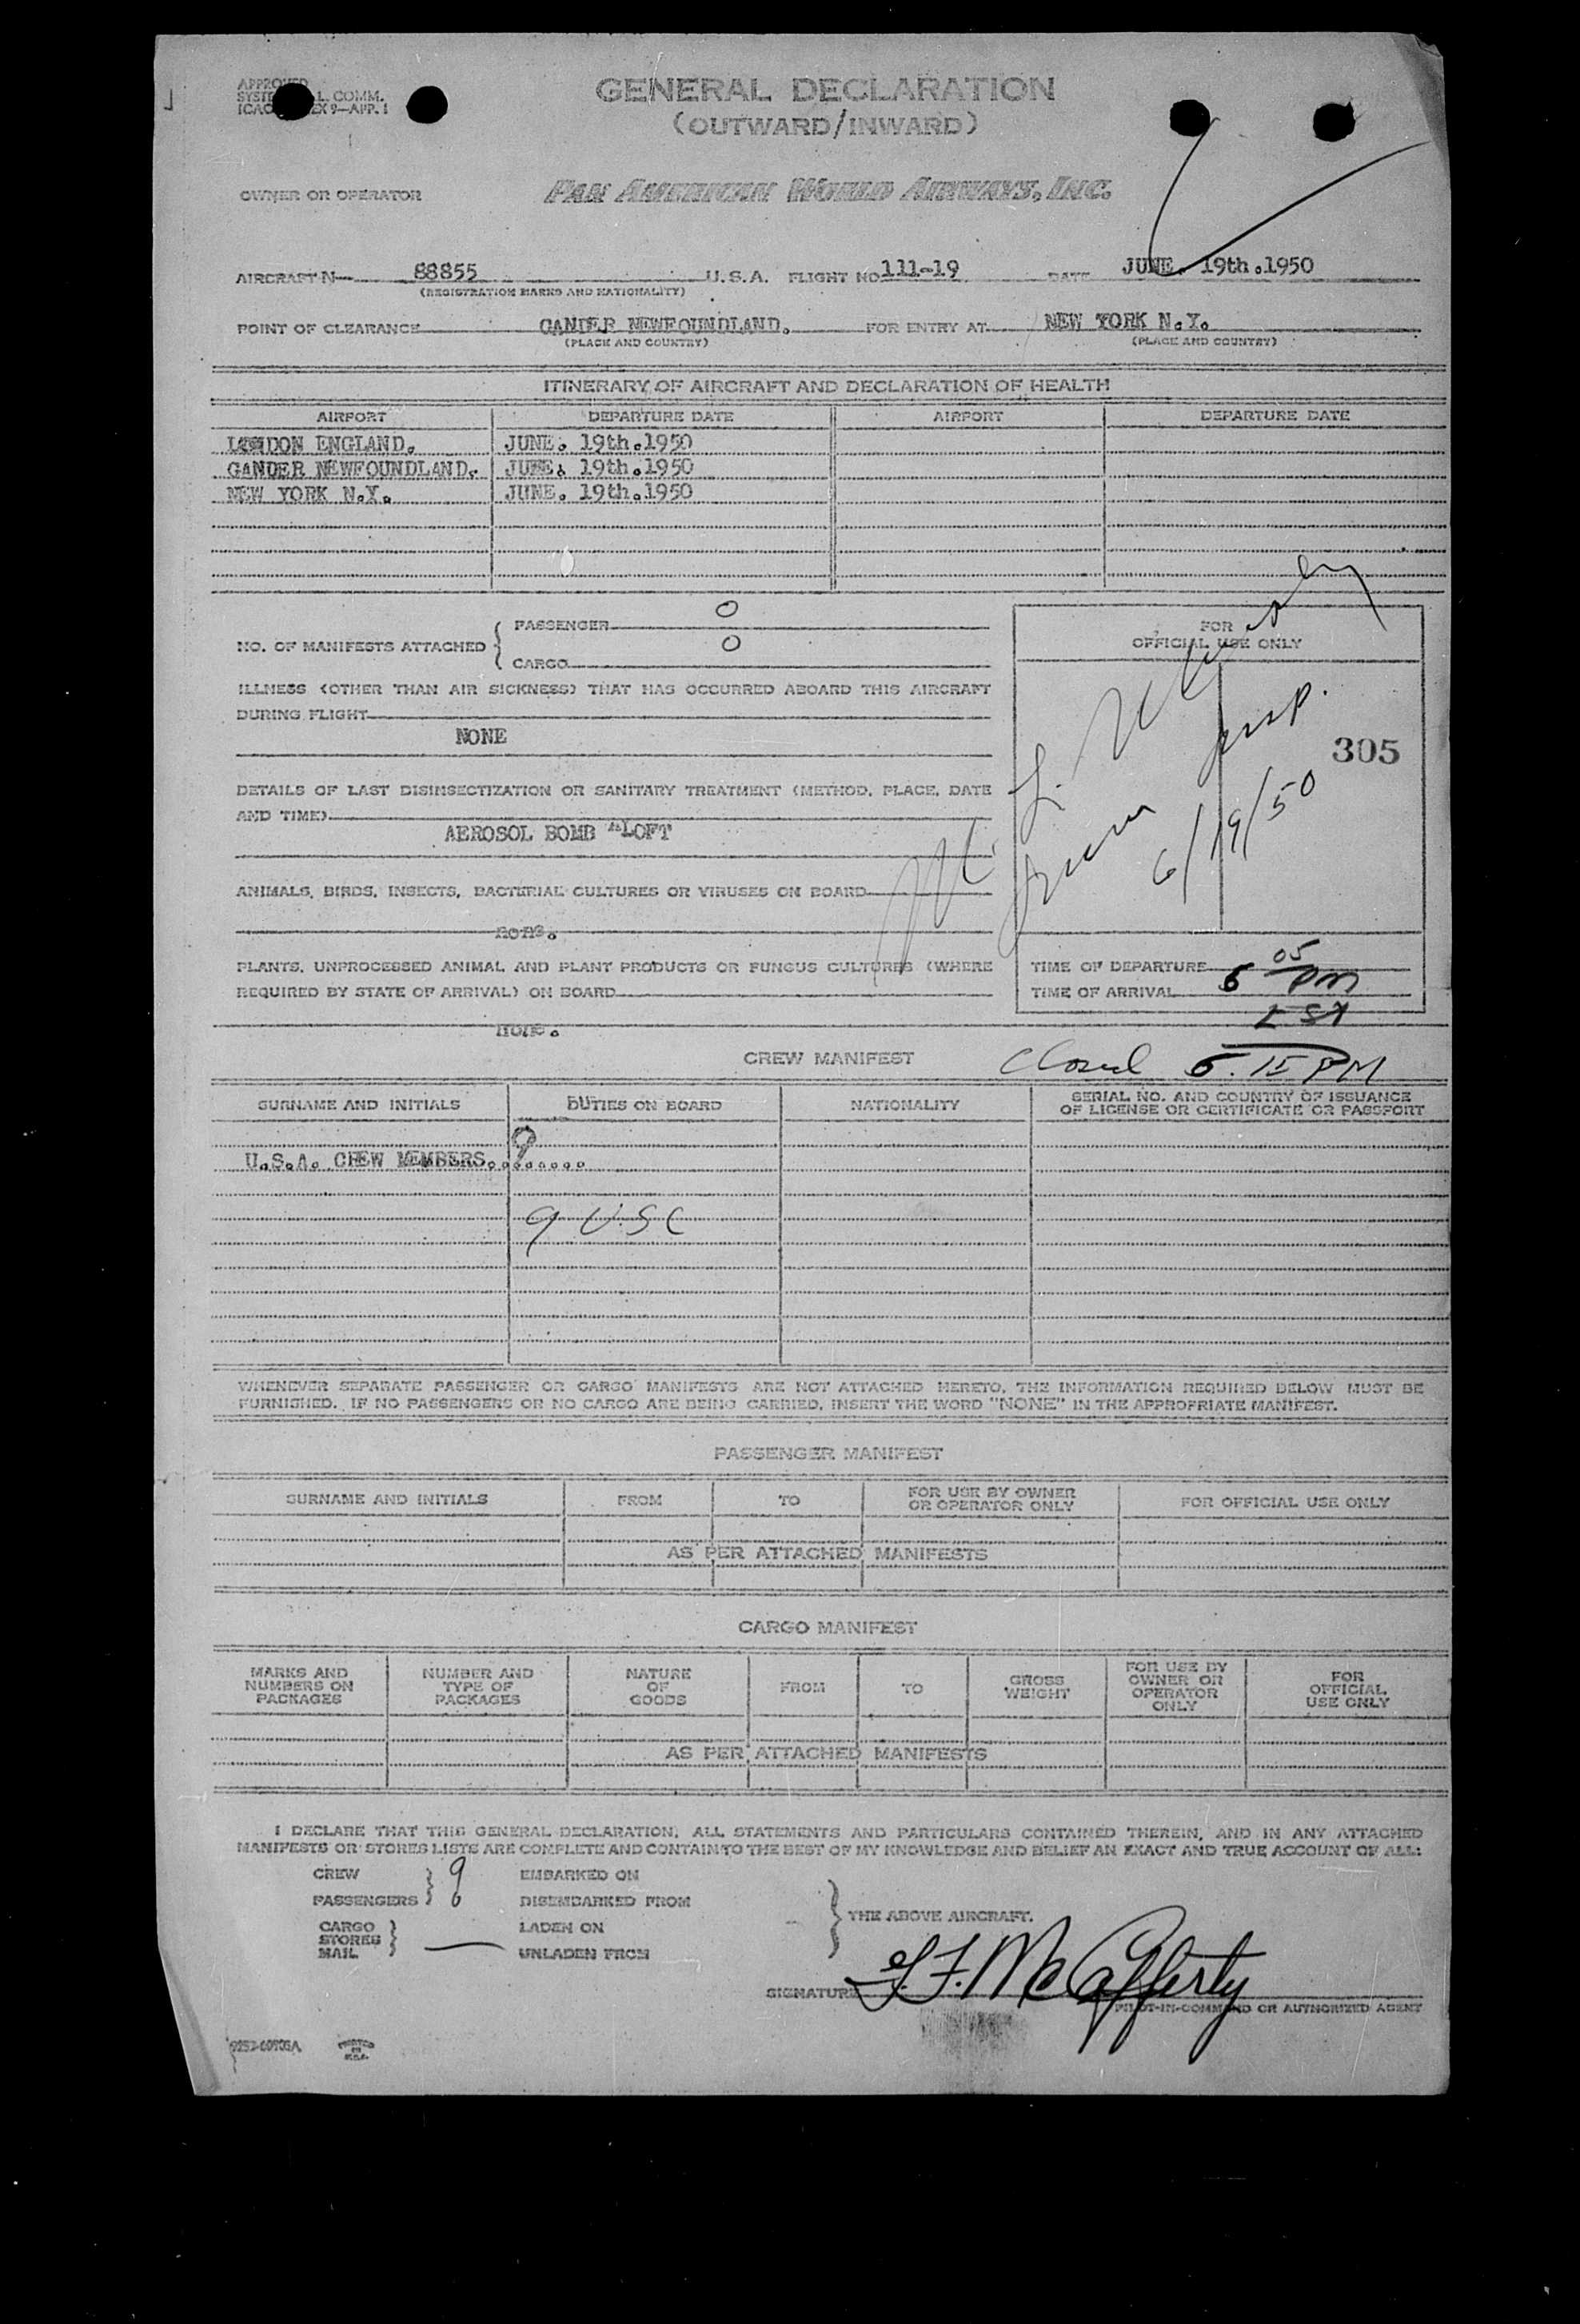 GENERAL DECLARATION
(OUTWARD/INWARD)
APPROVED
L. COMM.
EX 9—APP. 1
OWNER OR OPERATOR PAN AMERICAN WORLD AIRWAYS, INC.
AIRCRAFT N— 88855 U.S.A. FLIGHT NO 111-19 DATE JUNE. 19th.1950
(REGISTRATION MARKS AND NATIONALITY)
POINT OF CLEARANCE GANDER NEWFOUNDLAND. FOR ENTRY AT NEW YORK N.Y.
(PLACE AND COUNTRY) (PLACE AND COUNTRY)
ITINERARY OF AIRCRAFT AND DECLARATION OF HEALTH
AIRPORT DEPARTURE DATE AIRPORT DEPARTURE DATE
LONDON ENGLAND. JUNE. 19th.1950
GANDER NEWFOUNDLAND. JUNE. 19th.1950
NEW YORK N.Y. JUNE. 19th.1950
NO. OF MANIFESTS ATTACHED { PASSENGER 0
CARGO 0
ILLNESS (OTHER THAN AIR SICKNESS) THAT HAS OCCURRED ABOARD THIS AIRCRAFT
DURING FLIGHT
NONE
DETAILS OF LAST DISINSECTIZATION OR SANITARY TREATMENT (METHOD, PLACE, DATE
AND TIME)
AEROSOL BOMB ALOFT
ANIMALS, BIRDS, INSECTS, BACTERIAL CULTURES OR VIRUSES ON BOARD
none.
PLANTS, UNPROCESSED ANIMAL AND PLANT PRODUCTS OR FUNGUS CULTURES (WHERE
REQUIRED BY STATE OF ARRIVAL) ON BOARD
none.
FOR
OFFICIAL USE ONLY
Insp.
305
6/19/50
TIME OF DEPARTURE
TIME OF ARRIVAL 5 05 PM
EST
CREW MANIFEST Closed 5.15 PM
SURNAME AND INITIALS DUTIES ON BOARD NATIONALITY SERIAL NO. AND COUNTRY OF ISSUANCE
OF LICENSE OR CERTIFICATE OR PASSPORT
U.S.A. CREW MEMBERS......... 9
9 USC
WHENEVER SEPARATE PASSENGER OR CARGO MANIFESTS ARE NOT ATTACHED HERETO, THE INFORMATION REQUIRED BELOW MUST BE
FURNISHED. IF NO PASSENGERS OR NO CARGO ARE BEING CARRIED, INSERT THE WORD "NONE" IN THE APPROPRIATE MANIFEST.
PASSENGER MANIFEST
SURNAME AND INITIALS FROM TO FOR USE BY OWNER
OR OPERATOR ONLY FOR OFFICIAL USE ONLY
AS PER ATTACHED MANIFESTS
CARGO MANIFEST
MARKS AND
NUMBERS ON
PACKAGES
NUMBER AND
TYPE OF
PACKAGES
NATURE
OF
GOODS
FROM
TO
GROSS
WEIGHT
FOR USE BY
OWNER OR
OPERATOR
ONLY
FOR
OFFICIAL
USE ONLY
AS PER ATTACHED MANIFESTS
I DECLARE THAT THIS GENERAL DECLARATION, ALL STATEMENTS AND PARTICULARS CONTAINED THEREIN, AND IN ANY ATTACHED
MANIFESTS OR STORES LISTS ARE COMPLETE AND CONTAIN TO THE BEST OF MY KNOWLEDGE AND BELIEF AN EXACT AND TRUE ACCOUNT OF ALL:
CREW } 9 EMBARKED ON
PASSENGERS } 0 DISEMBARKED FROM
CARGO LADEN ON
STORES } —
MAIL UNLADEN FROM
} THE ABOVE AIRCRAFT.
SIGNATURE McCafferty
PILOT-IN-COMMAND OR AUTHORIZED AGENT
PRINTED
IN
U.S.A.